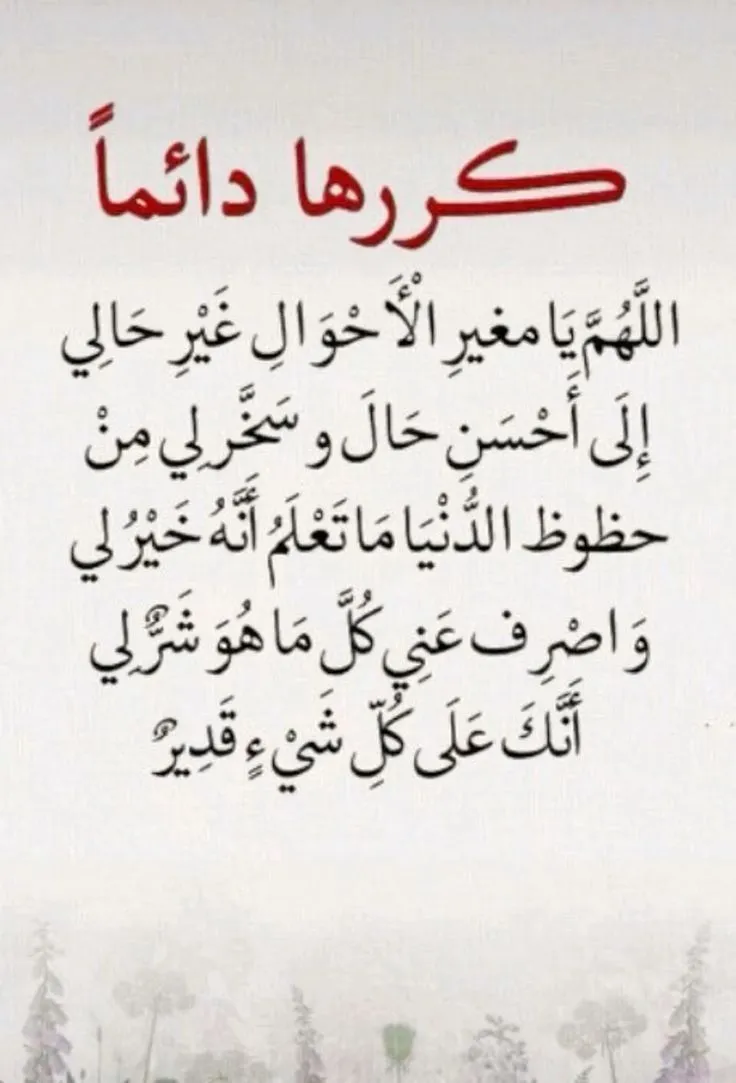 كررها دائماً
اللَّهُمَّ يَا مغيرِ الْأَحْوَالِ غَيْرِ حَالِي
إِلَى أَحْسَنِ حَالَ و سَخَّر لِي مِنْ
حظوظ الدُّنْيَا مَا تَعْلَمُ أَنَّهُ خَيْرُ لي
وَاصْرِف عَنِي كُلَّ مَا هُوَ شَرٌّ لِي
أَنَّكَ عَلَى كُلِّ شَيْءٍ قَدِيرٌ